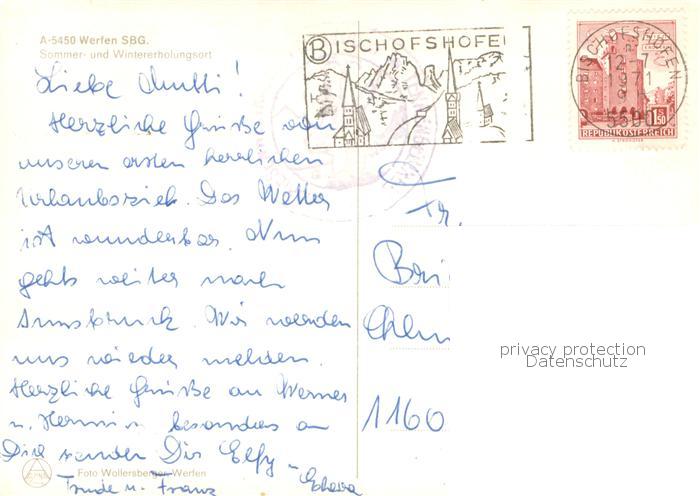 A-5450 Werfen SBG.
Sommer- und Wintererholungsort
Liebe Mutti!
Herzliche Grüße von
unserem ersten herrlichen
Urlaubsziel. Das Wetter
ist wunderbar. Nun
geht's weiter nach
Innsbruck. Wir werden
uns wieder melden.
Herzliche Grüße an Werner
u. Hermin besonders an
Dich senden Dir Elfy
Trude u. Franz
Foto Wollersberger, Werfen
BISCHOFSHOFEN
BISCHOFSHOFEN
12.-7
1971
9
5500
1.50
REPUBLIK ÖSTERREICH
Fr.
1160
privacy protection
Datenschutz